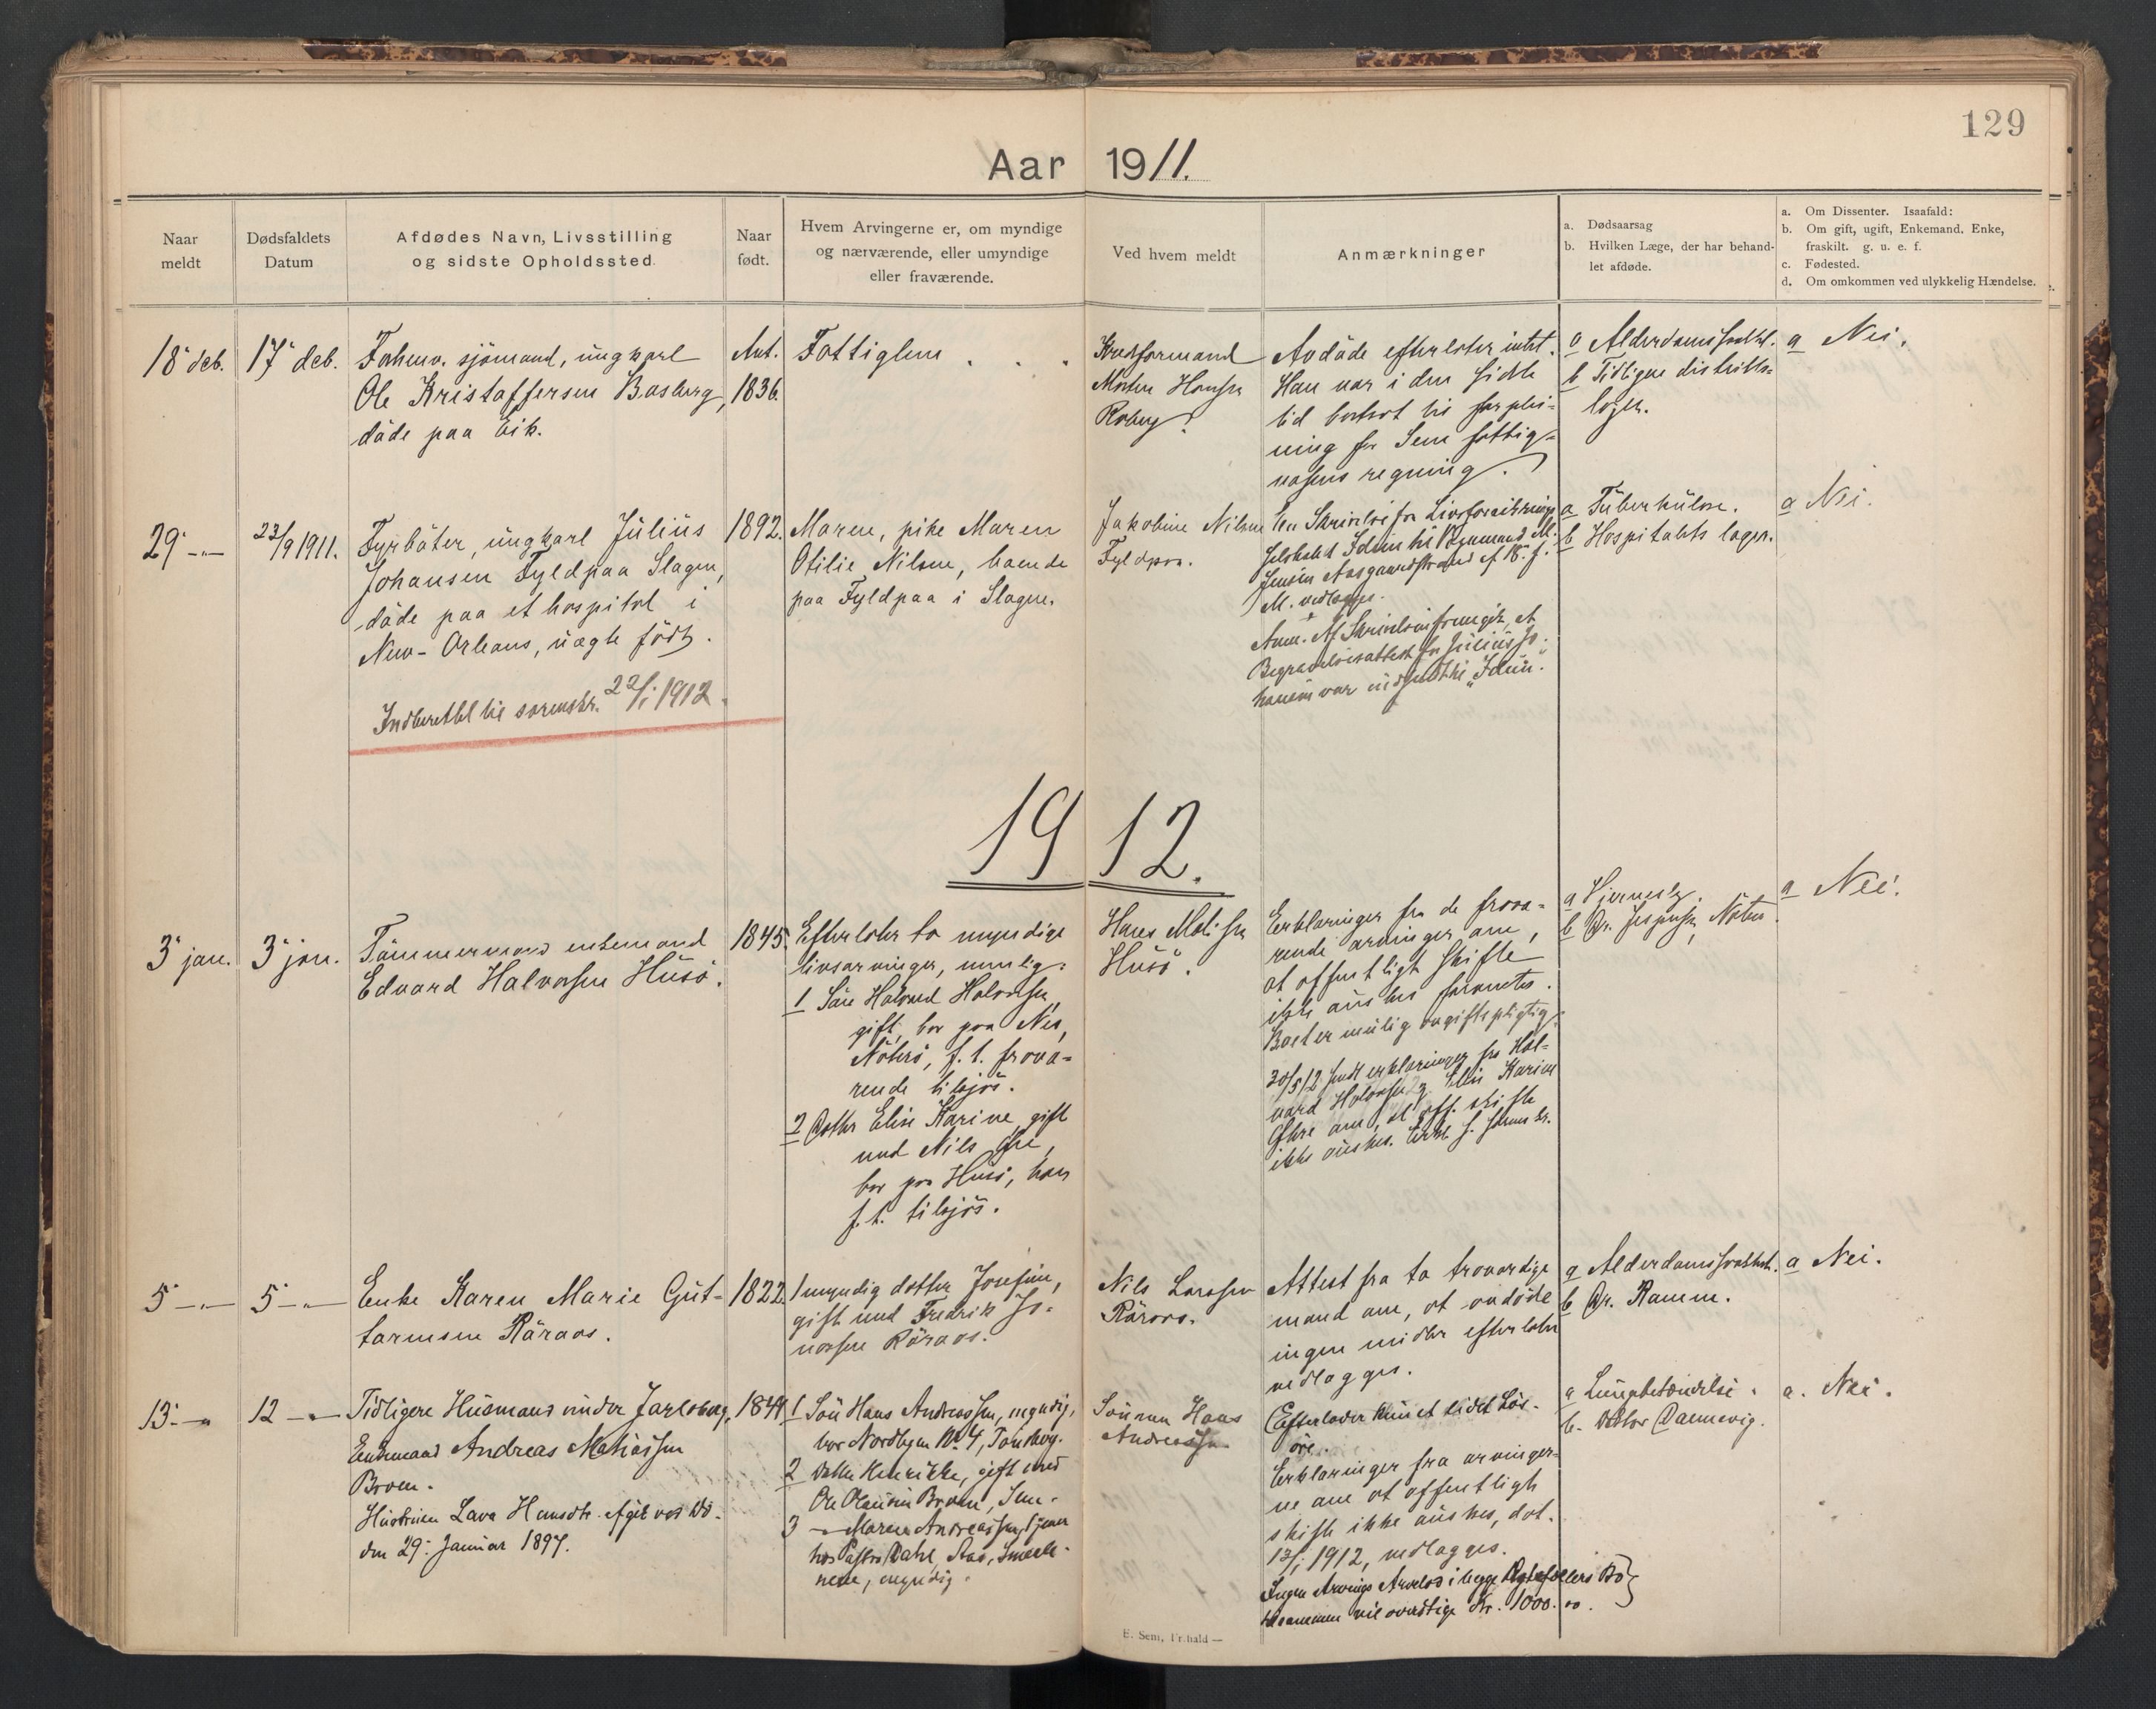 129
Aar 1911.
Naar meldt
Dødsfaldets Datum
Afdødes Navn, Livsstilling og sidste Opholdssted
Naar født.
Hvem Arvingerne er, om myndige og nærværende, eller umyndige eller fraværende.
Ved hvem meldt
Anmærkninger
a. Dødsaarsag
b. Hvilken Læge, der har behandlet afdøde.
a. Om Dissenter. Isaafald:
b. Om gift, ugift, Enkemand, Enke, fraskilt. g. u. e. f.
c. Fødested.
d. Om omkommen ved ulykkelig Hændelse.
18 deb.
17 deb.
sjömand, ungkarl
Ole Kristoffersen Basberg,
döde paa Eik.
Ant.
1836.
Fattiglem . . .
Kredsformand
Morten Hansen
Roberg
Avdöde efterlater intet.
Han var i den sidste
tid bortsat til forplei-
ning for Sem fattig-
væsens regning.
a Alderdomssvakhet.
b Tidligere distrikts-
læger.
a Nei.
29 -"-
23/9 1911.
Fyrböter, ungkarl Julius
Johansen Fyldpaa Slagen,
döde paa et hospital i
New-Orleans, uægte födt.
Indberettet til sorenskr. 22/1 1912.
1892.
Moren, pike Maren
Otilie Nilsen, boende
paa Fyldpaa i Slagen.
Jakobine Nilsen
Fyldpaa.
En Skrivelse fra Livsforsikrings
selskabet Idun til
Jensen Aasgaardstrand af 18. f.
M. vedlægges.
Anm. Af Skrivelsen fremgik, at
Begravelsesattest for Julius Jo-
hansen var indsendt til "Idun".
a Tuberkulose.
b Hospitalets læger.
a Nei.
1912.
3 jan.
3 jan.
Tömmermand enkemand
Edvard Halvorsen Husö.
1845.
Efterlater to myndige
livsarvinger, nemlig:
1 Sön Halvard Halvorsen,
gift, bor paa Nes,
Nöterö, f. t. fravæ-
rende tilsjös.
2 Datter Elise Karine gift
med Nils Öhre,
bor paa Husö, han
f. t. tilsjös.
Hans Matisen
Husö.
Erklæringer fra de fravæ-
rende arvinger om,
at offentligt skifte
ikke önskes forventes.
Boet er mulig avgiftspligtig.
30/5 12 sendt erklæringer fra Hal-
vard Halvorsen og Elise Karine
Öhre om, at off. skifte
ikke önskes.
a Hjerneslag.
b Dr. Jespersen, Nöterö.
a Nei.
5 -"-
5 -"-
Enke Karen Marie Gut-
tormsen Räraas.
1822.
1 myndig datter Josefine,
gift med Fredrik Jo-
nassen Räraas.
Nils Larssen
Räraas.
Attest fra to troværdige
mænd om, at avdöde
ingen midler efterlater
vedlægges.
a Alderdomssvakhet.
b Dr. Ramm.
a Nei.
13 -"-
12 -"-
Tidligere Husmand under Jarlsberg,
Enkemand Andreas Matiassen
Broen.
Hustruen Lava Hansdtr. Afgik ved Dö-
den 29. Januar 1897.
1 Sön Hans Andreassen, myndig,
bor Nordbyen No 4, Tønsberg.
2 Datter Henrikke, gift med
Ole Olausen Broen, Sem.
3 -"- Maren Andreassen, tjener
hos Pastor Dahl, Aas, Smaale-
nene, myndig.
Sönnen Hans
Andreassen.
Efterlader kun et lidet Lös-
öre.
Erklæringer fra arvinger-
ne om at offentligt
skifte ikke önskes, dat.
12/1 1912, vedlægges.
Ingen Arvings Arvelod i begge Ægtefællers Bo
tilsammen vil overstige Kr. 1000.00.
a Lungebetændelse.
b. Doktor Dannevig.
a. Nei.
E. Sem, Fr.hald —